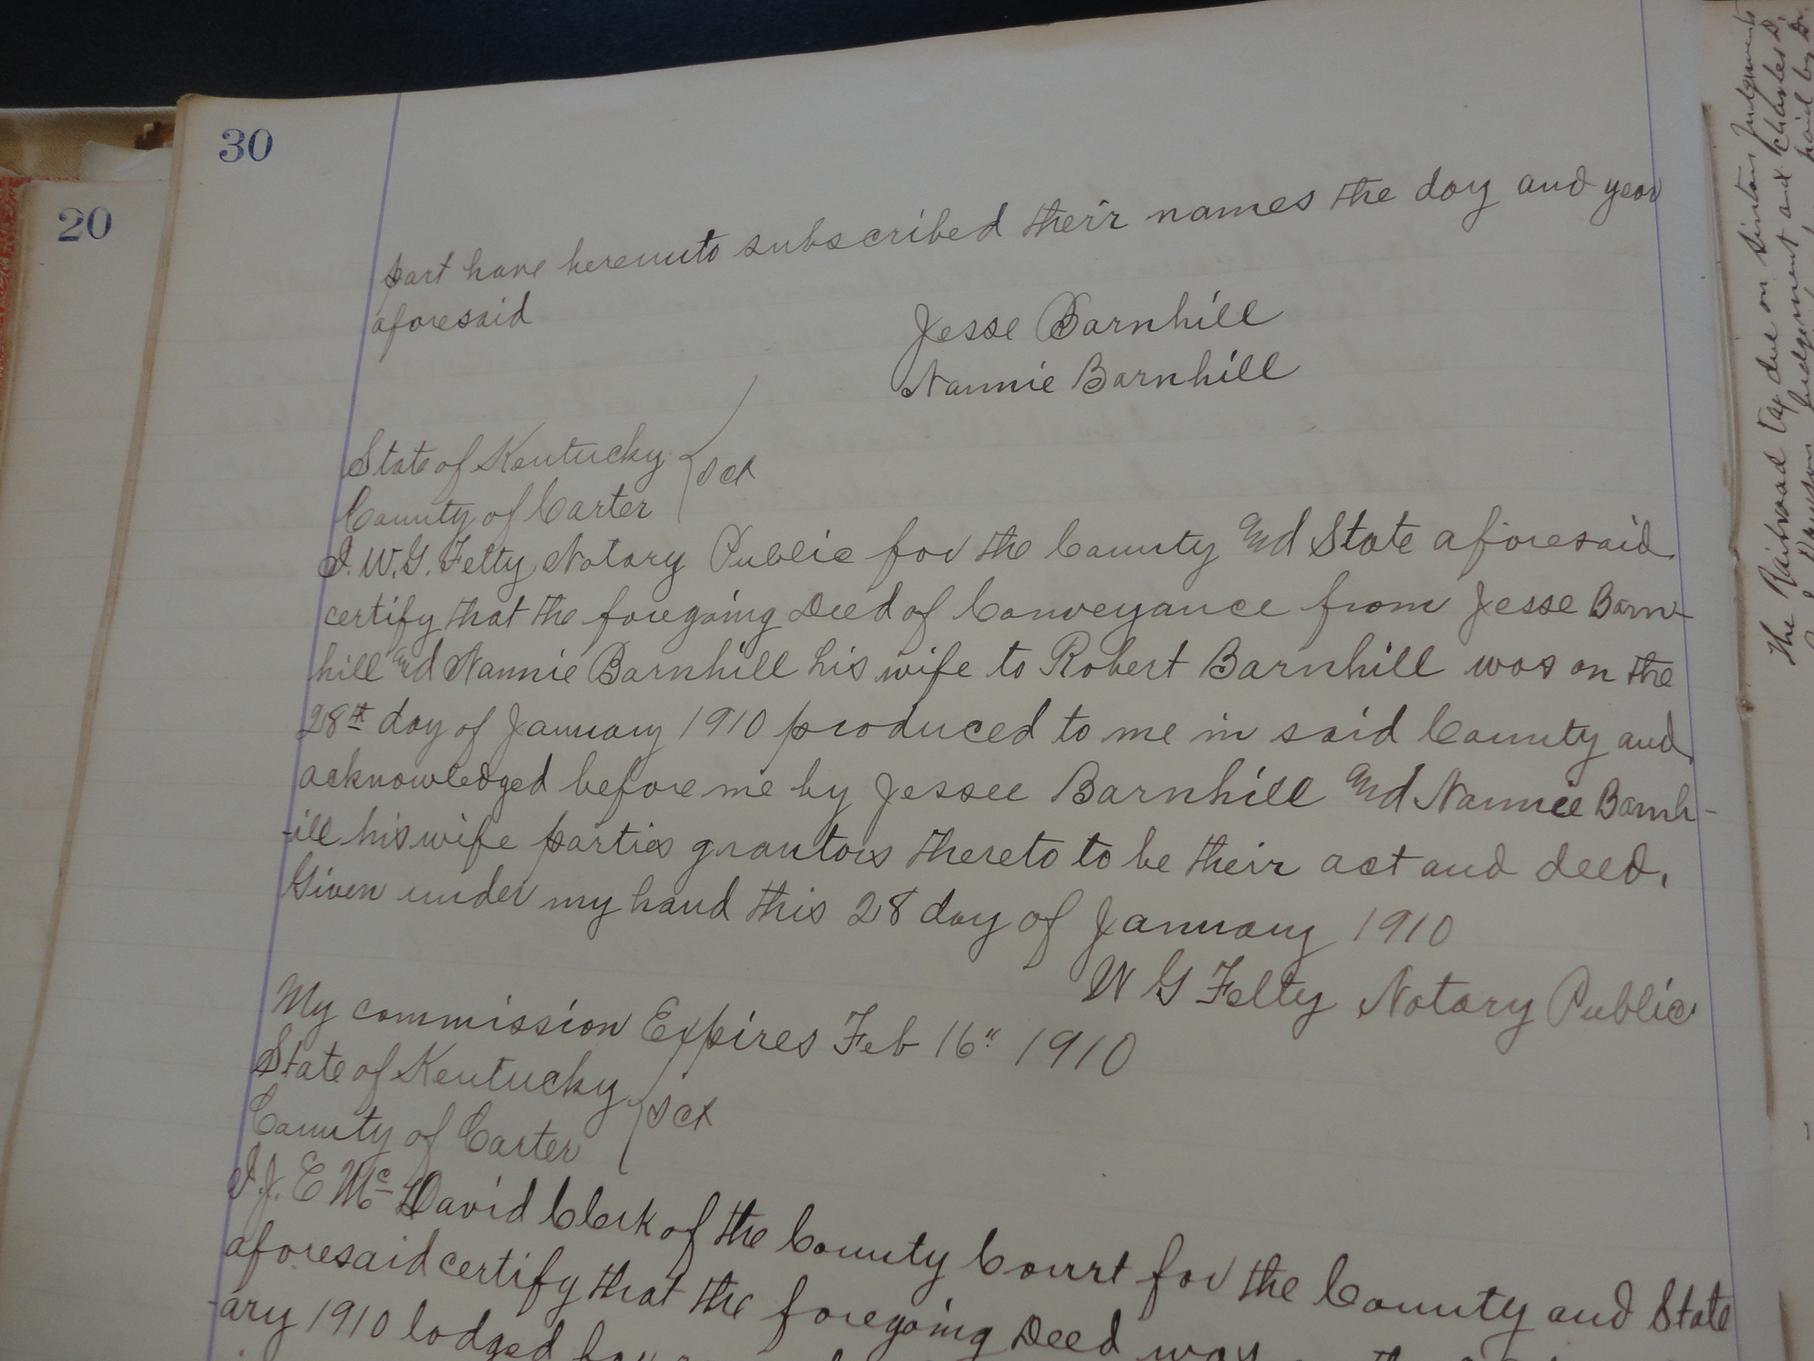 30
20
part have hereunto subscribed their names the day and year
aforesaid
Jesse Barnhill
Nannie Barnhill
State of Kentucky
County of Carter
Sct
I. W.G. Felty Notary Public for the County and State aforesaid
certify that the foregoing Deed of Conveyance from Jesse Barn-
hill and Nannie Barnhill his wife to Robert Barnhill was on the
28th day of January 1910 produced to me in said County and
acknowledged before me by Jessee Barnhill and Nannie Barnh-
-ill his wife parties grantors thereto to be their act and deed.
Given under my hand this 28 day of January 1910
W G Felty Notary Public
My commission Expires Feb 16" 1910
State of Kentucky
County of Carter
Sct
I. J. E McDavid Clerk of the County Court for the County and State
aforesaid certify that the foregoing Deed was
-ary 1910 lodged
The Railroad Tax due on Sinton Judgments
Judgement and Charles D.
paid by Dr.